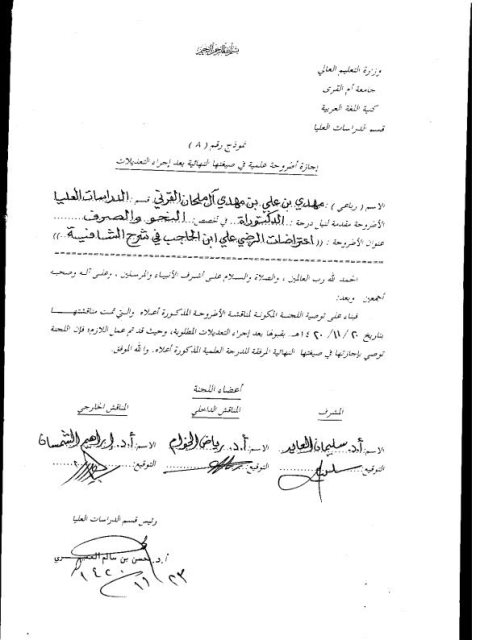 بسم الله الرحمن الرحيم
وزارة التعليم العالي
جامعة أم القرى
كلية اللغة العربية
قسم الدراسات العليا
نموذج رقم ( ٨ )
إجازة أطروحة علمية في صيغتها النهائية بعد إجراء التعديلات
الاسم ( رباعي ) : مهدي بن علي بن مهدي آل ملحان القرني قسم : الدراسات العليا
الأطروحة مقدمة لنيل درجة : الدكتوراة في تخصص : النحو والصرف
عنوان الأطروحة : (( اعتراضات الرضي على ابن الحاجب في شرح الشافية ))
الحمد لله رب العالمين ، والصلاة والسلام على أشرف الأنبياء والمرسلين ، وعلى آله وصحبه
أجمعين وبعد :
فبناء على توصية اللجنة المكونة لمناقشة الأطروحة المذكورة أعلاه والتي تمت مناقشتها
بتاريخ ٢٠ / ١١ / ١٤٢٠هـ بقبولها بعد إجراء التعديلات المطلوبة، وحيث قد تم عمل اللازم؛ فإن اللجنة
توصي بإجازتها في صيغتها النهائية المرفقة للدرجة العلمية المذكورة أعلاه. والله الموفق.
أعضاء اللجنة
المشرف المناقش الداخلي المناقش الخارجي
الاسم: أ.د. سليمان العايد الاسم: أ.د. رياض الخوام الاسم: أ.د. إبراهيم الشمسان
التوقيع: التوقيع: التوقيع:
رئيس قسم الدراسات العليا
أ. د. حسن بن سالم
٢٣ / ١١ / ١٤٢٠